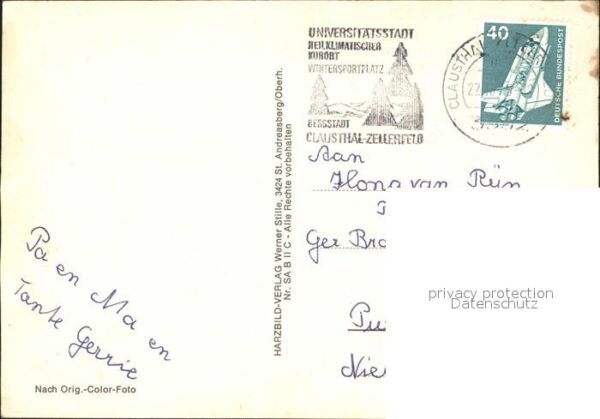 UNIVERSITÄTSSTADT
HEILKLIMATISCHER
KURORT
WINTERSPORTPLATZ
BERGSTADT
CLAUSTHAL-ZELLERFELD
CLAUSTHAL
40
DEUTSCHE BUNDESPOST
HARZBILD-VERLAG Werner Stille, 3424 St. Andreasberg/Oberh.
Nr. SA B II C - Alle Rechte vorbehalten
Pa en Ma en
Tante Gerrie
Nach Orig.-Color-Foto
Aan
Ilona van Rijn
Ger Bro
privacy protection
Datenschutz